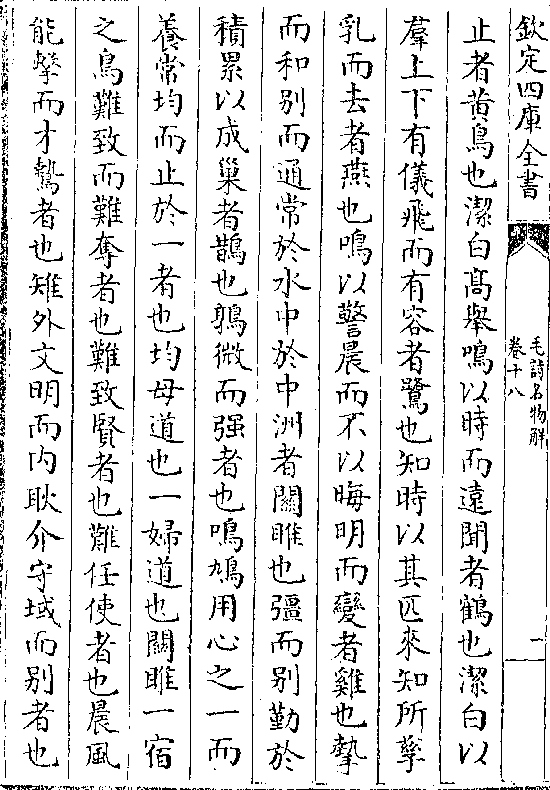 欽定四庫全書
毛詩名物解
卷十八
一
止者黄鳥也潔白髙舉鳴以時而遠聞者鶴也潔白以
羣上下有儀飛而有容者鷺也知時以其匹來知所孳
乳而去者燕也鳴以警晨而不以晦明而變者雞也摯
而和别而通常於水中於中洲者關雎也彊而别勤於
積累以成巢者鵲也鷦微而强者也鳴鳩用心之一而
養常均而止於一者也均母道也一婦道也關雎一宿
之鳥難致而難奪者也難致賢者也難任使者也晨風
能擊而才鷙者也雉外文明而内耿介守域而别者也